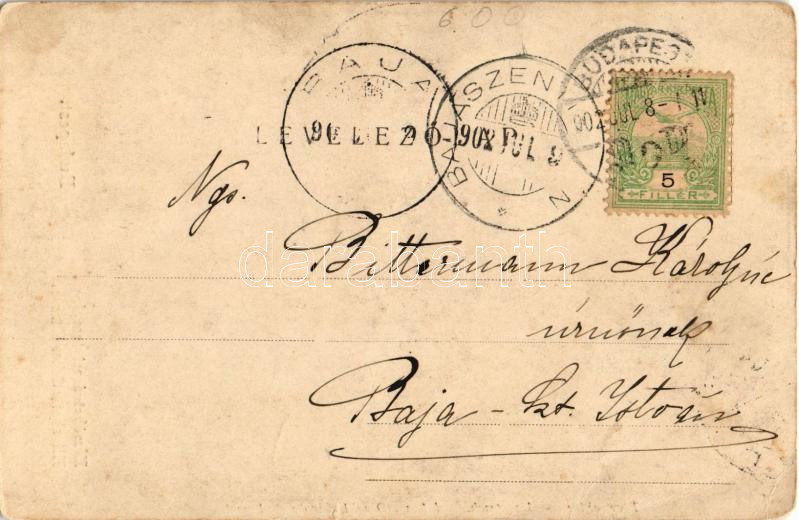 600
BAJA
BAJASZEN N
902 JUL 9
BUDAPEST
902 JUL 8
LEVELEZŐ-LAP
5
FILLÉR
Ngs.
Bittermann Károlyné
úrnőnek
Baja - Szt. István
darabanth